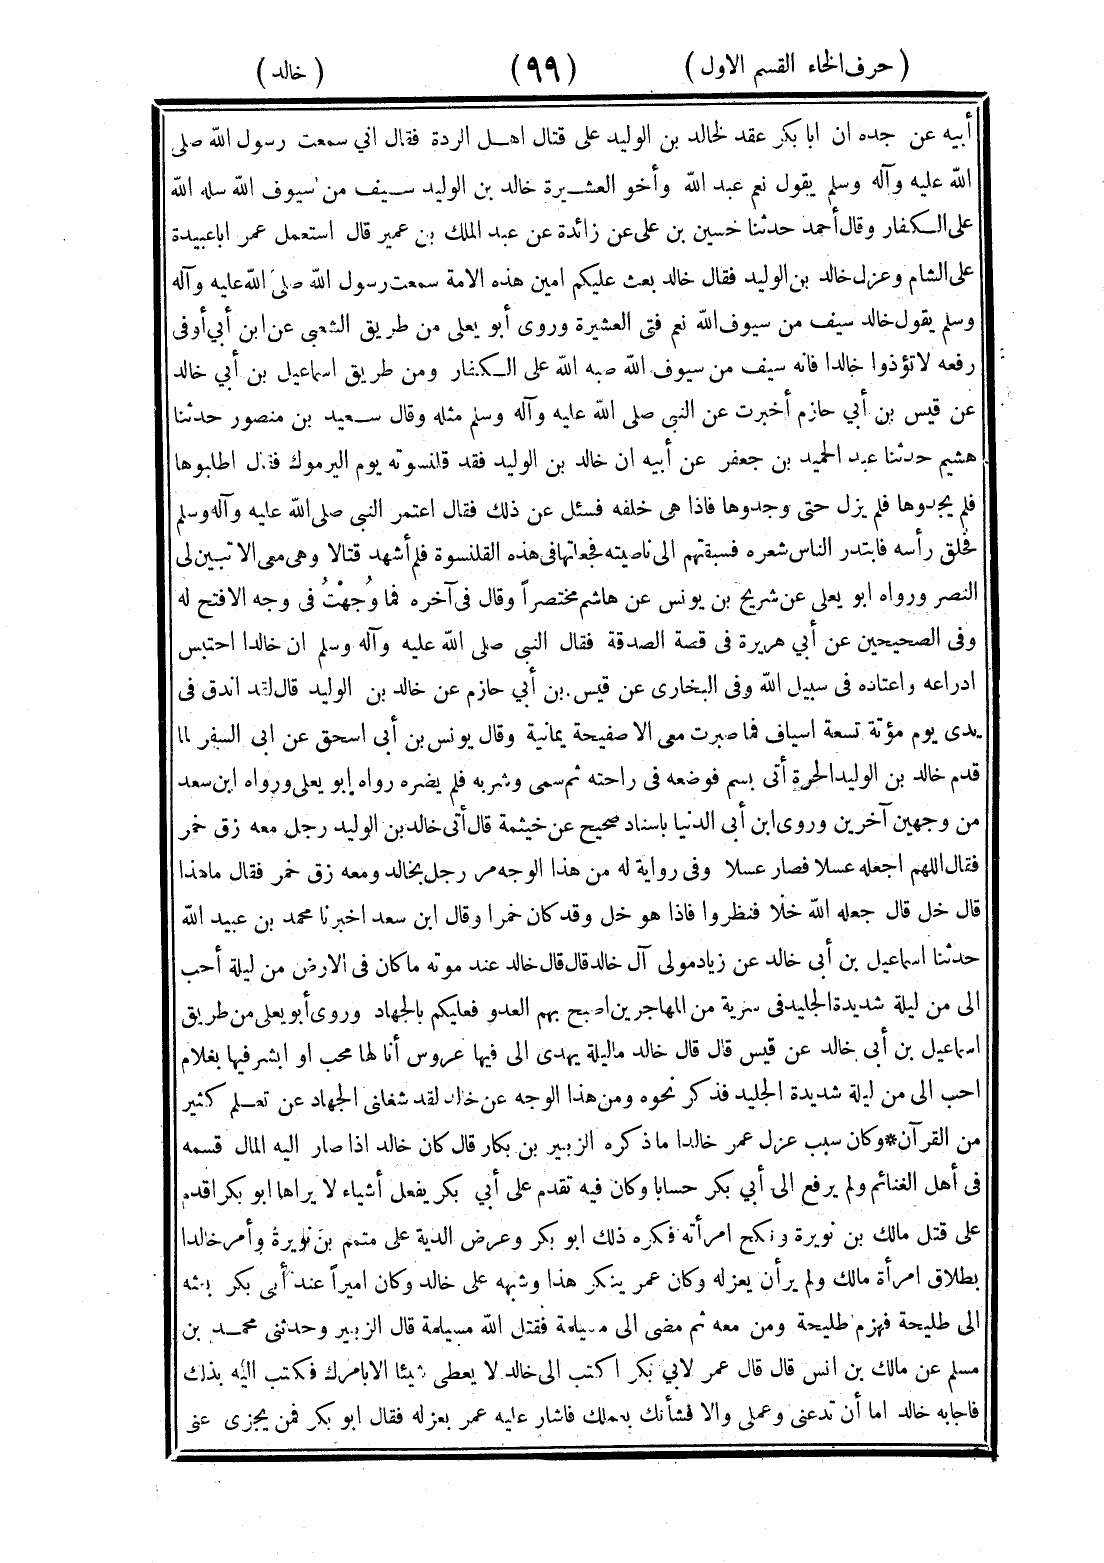 (حرف الخاء القسم الاول) (٩٩) (خالد)
أبيه عن جده ان ابا بكر عقد لخالد بن الوليد على قتال اهل الردة فقال اني سمعت رسول الله صلى
الله عليه وآله وسلم يقول نعم عبد الله وأخو العشيرة خالد بن الوليد سيف من سيوف الله سله الله
على الكفار وقال أحمد حدثنا حسين بن على عن زائدة عن عبد الملك بن عمير قال استعمل عمر اباعبيدة
على الشام وعزل خالد بن الوليد فقال خالد بعث عليكم امين هذه الامة سمعت رسول الله صلى الله عليه وآله
وسلم يقول خالد سيف من سيوف الله نعم فتى العشيرة وروى أبو يعلى من طريق الشعبى عن ابن أبي أوفى
رفعه لا تؤذوا خالدا فانه سيف من سيوف الله صبه الله على الكفار ومن طريق اسماعيل بن أبي خالد
عن قيس بن أبي حازم أخبرت عن النبى صلى الله عليه وآله وسلم مثله وقال سعيد بن منصور حدثنا
هشيم حدثنا عبد الحميد بن جعفر عن أبيه ان خالد بن الوليد فقد قلنسوته يوم اليرموك فقال اطلبوها
فلم يجدوها فلم يزل حتى وجدوها فاذا هى خلقه فسئل عن ذلك فقال اعتمر النبى صلى الله عليه وآله وسلم
فحلق رأسه فابتدر الناس شعره فسبقتهم الى ناصيته فجعلتها فى هذه القلنسوة فلم أشهد قتالا وهى معى الا تبين لى
النصر ورواه ابو يعلى عن شريح بن يونس عن هاشم مختصراً وقال فى آخره فما وُجهْتُ فى وجه الا فتح له
وفى الصحيحين عن أبي هريرة فى قصة الصدقة فقال النبى صلى الله عليه وآله وسلم ان خالدا احتبس
ادراعه واعتاده فى سبيل الله وفى البخارى عن قيس بن أبي حازم عن خالد بن الوليد قال لقد اندق فى
يدى يوم مؤتة تسعة اسياف فما صبرت معى الا صفيحة يمانية وقال يونس بن أبى اسحق عن ابى السفر لما
قدم خالد بن الوليد الحرة أتى بسم فوضعه فى راحته ثم سمى وشربه فلم يضره رواه ابو يعلى ورواه ابن سعد
من وجهين آخرين وروى ابن أبى الدنيا باسناد صحيح عن خيثمة قال أتى خالد بن الوليد رجل معه زق خمر
فقال اللهم اجعله عسلا فصار عسلا وفى رواية له من هذا الوجه مر رجل بخالد ومعه زق خمر فقال ما هذا
قال خل قال جعله الله خلا فنظروا فاذا هو خل وقد كان خمرا وقال ابن سعد اخبرنا محمد بن عبيد الله
حدثنا اسماعيل بن أبى خالد عن زياد مولى آل خالد قال قال خالد عند موته ما كان فى الارض من ليلة أحب
الى من ليلة شديدة الجليد فى سرية من المهاجرين اصبح بهم العدو فعليكم بالجهاد وروى أبو يعلى من طريق
اسماعيل بن أبى خالد عن قيس قال قال خالد ما ليلة يهدى الى فيها عروس أنا لها محب او ابشر فيها بغلام
احب الى من ليلة شديدة الجليد فذكر نحوه ومن هذا الوجه عن خالد لقد شغلنى الجهاد عن تعلم كثير
من القرآن*وكان سبب عزل عمر خالدا ما ذكره الزبير بن بكار قال كان خالد اذا صار اليه المال قسمه
فى أهل الغنائم ولم يرفع الى أبي بكر حسابا وكان فيه تقدم على أبي بكر يفعل أشياء لا يراها ابو بكر اقدم
على قتل مالك بن نويرة ونكح امرأته فكره ذلك ابو بكر وعرض الدية على متمم بن نويرة وأمر خالدا
بطلاق امرأة مالك ولم ير أن يعزله وكان عمر ينكر هذا وشبهه على خالد وكان اميراً عند أبى بكر بعثه
الى طليحة فهزم طليحة ومن معه ثم مضى الى مسيلمة فقتل الله مسيلمة قال الزبير وحدثنى محمد بن
مسلم عن مالك بن انس قال قال عمر لابي بكر اكتب الى خالد لا يعطى شيئا الا بامرك فكتب اليه بذلك
فاجابه خالد اما أن تدعنى وعملى والا فشأنك بعملك فاشار عليه عمر بعزله فقال ابو بكر فمن يجزى عنى